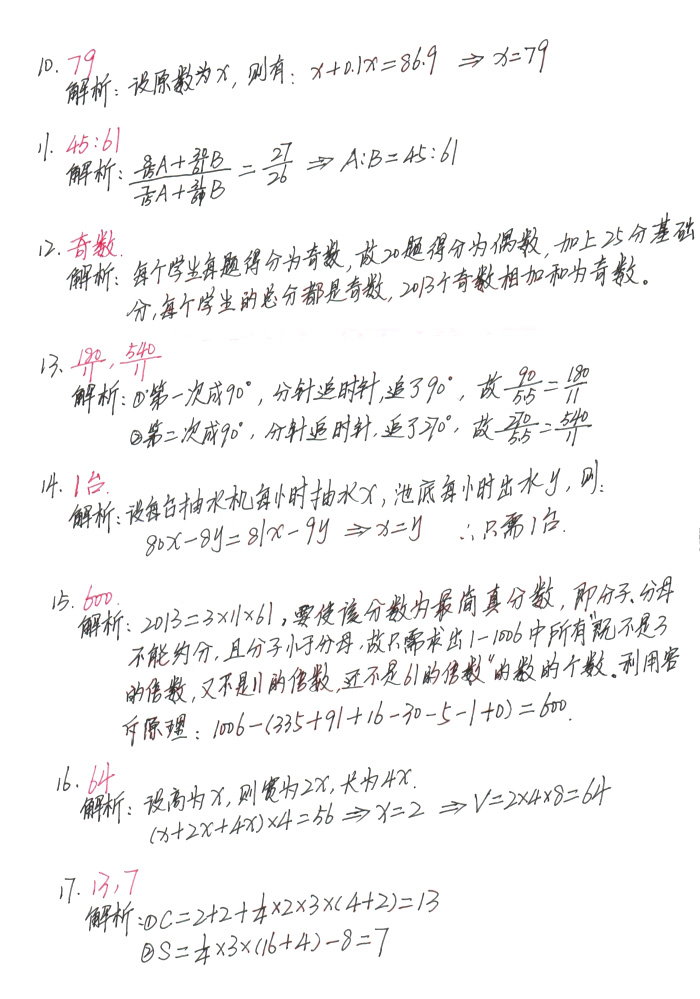 10. 79
解析：设原数为x，则有：x+0.1x=86.9 ⇒ x=79
11. 45:61
解析：(8/15 A + 30/61 B)/(7/15 A + 31/61 B) = 27/26 ⇒ A:B=45:61
12. 奇数.
解析：每个学生每题得分为奇数，故20题得分为偶数，加上25分基础
分，每个学生的总分都是奇数，2013个奇数相加和为奇数。
13. 180/11，540/11
解析：①第一次成90°，分针追时针，追了90°，故 90/5.5=180/11
②第二次成90°，分针追时针，追了270°，故 270/5.5=540/11
14. 1台.
解析：设每台抽水机每小时抽水x，池底每小时出水y，则：
80x-8y=81x-9y ⇒ x=y ∴只需1台.
15. 600.
解析：2013=3×11×61。要使该分数为最简真分数，即分子、分母
不能约分，且分子小于分母，故只需求出1-1006中所有"既不是3
的倍数，又不是11的倍数，还不是61的倍数"的数的个数。利用容
斥原理：1006-(335+91+16-30-5-1+0)=600.
16. 64
解析：设高为x，则宽为2x，长为4x.
(x+2x+4x)×4=56 ⇒ x=2 ⇒ V=2×4×8=64
17. 13，7
解析：①C=2+2+1/4×2×3×(4+2)=13
②S=1/4×3×(16+4)-8=7